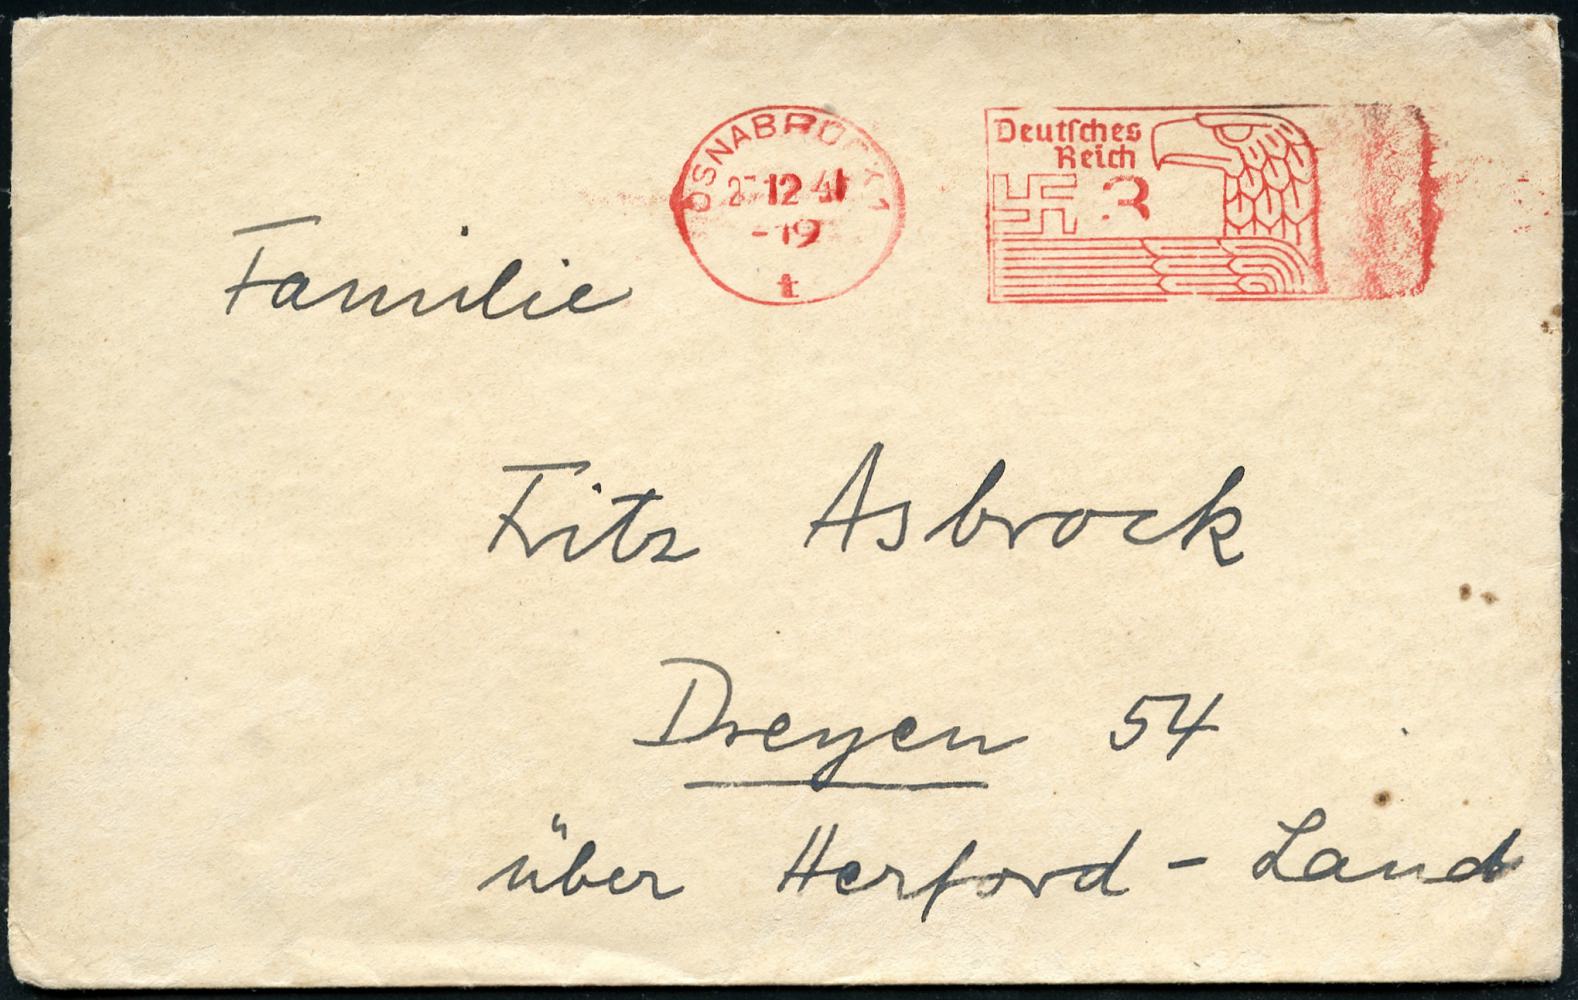 OSNABRÜCK 1
12 41
-19
t
Deutsches
Reich
3
Familie
Fritz Asbrock
Dreyen 54
über Herford - Land